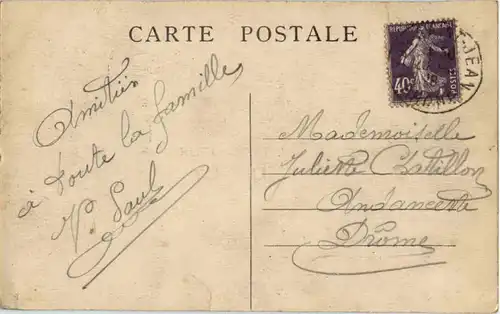 CARTE POSTALE
REPUBLIQUE FRANÇAISE
40c
POSTES
JEAN
Amitiés
à toute la famille
V. Paul
Mademoiselle
Juliette Chatillon
Andancette
Drôme